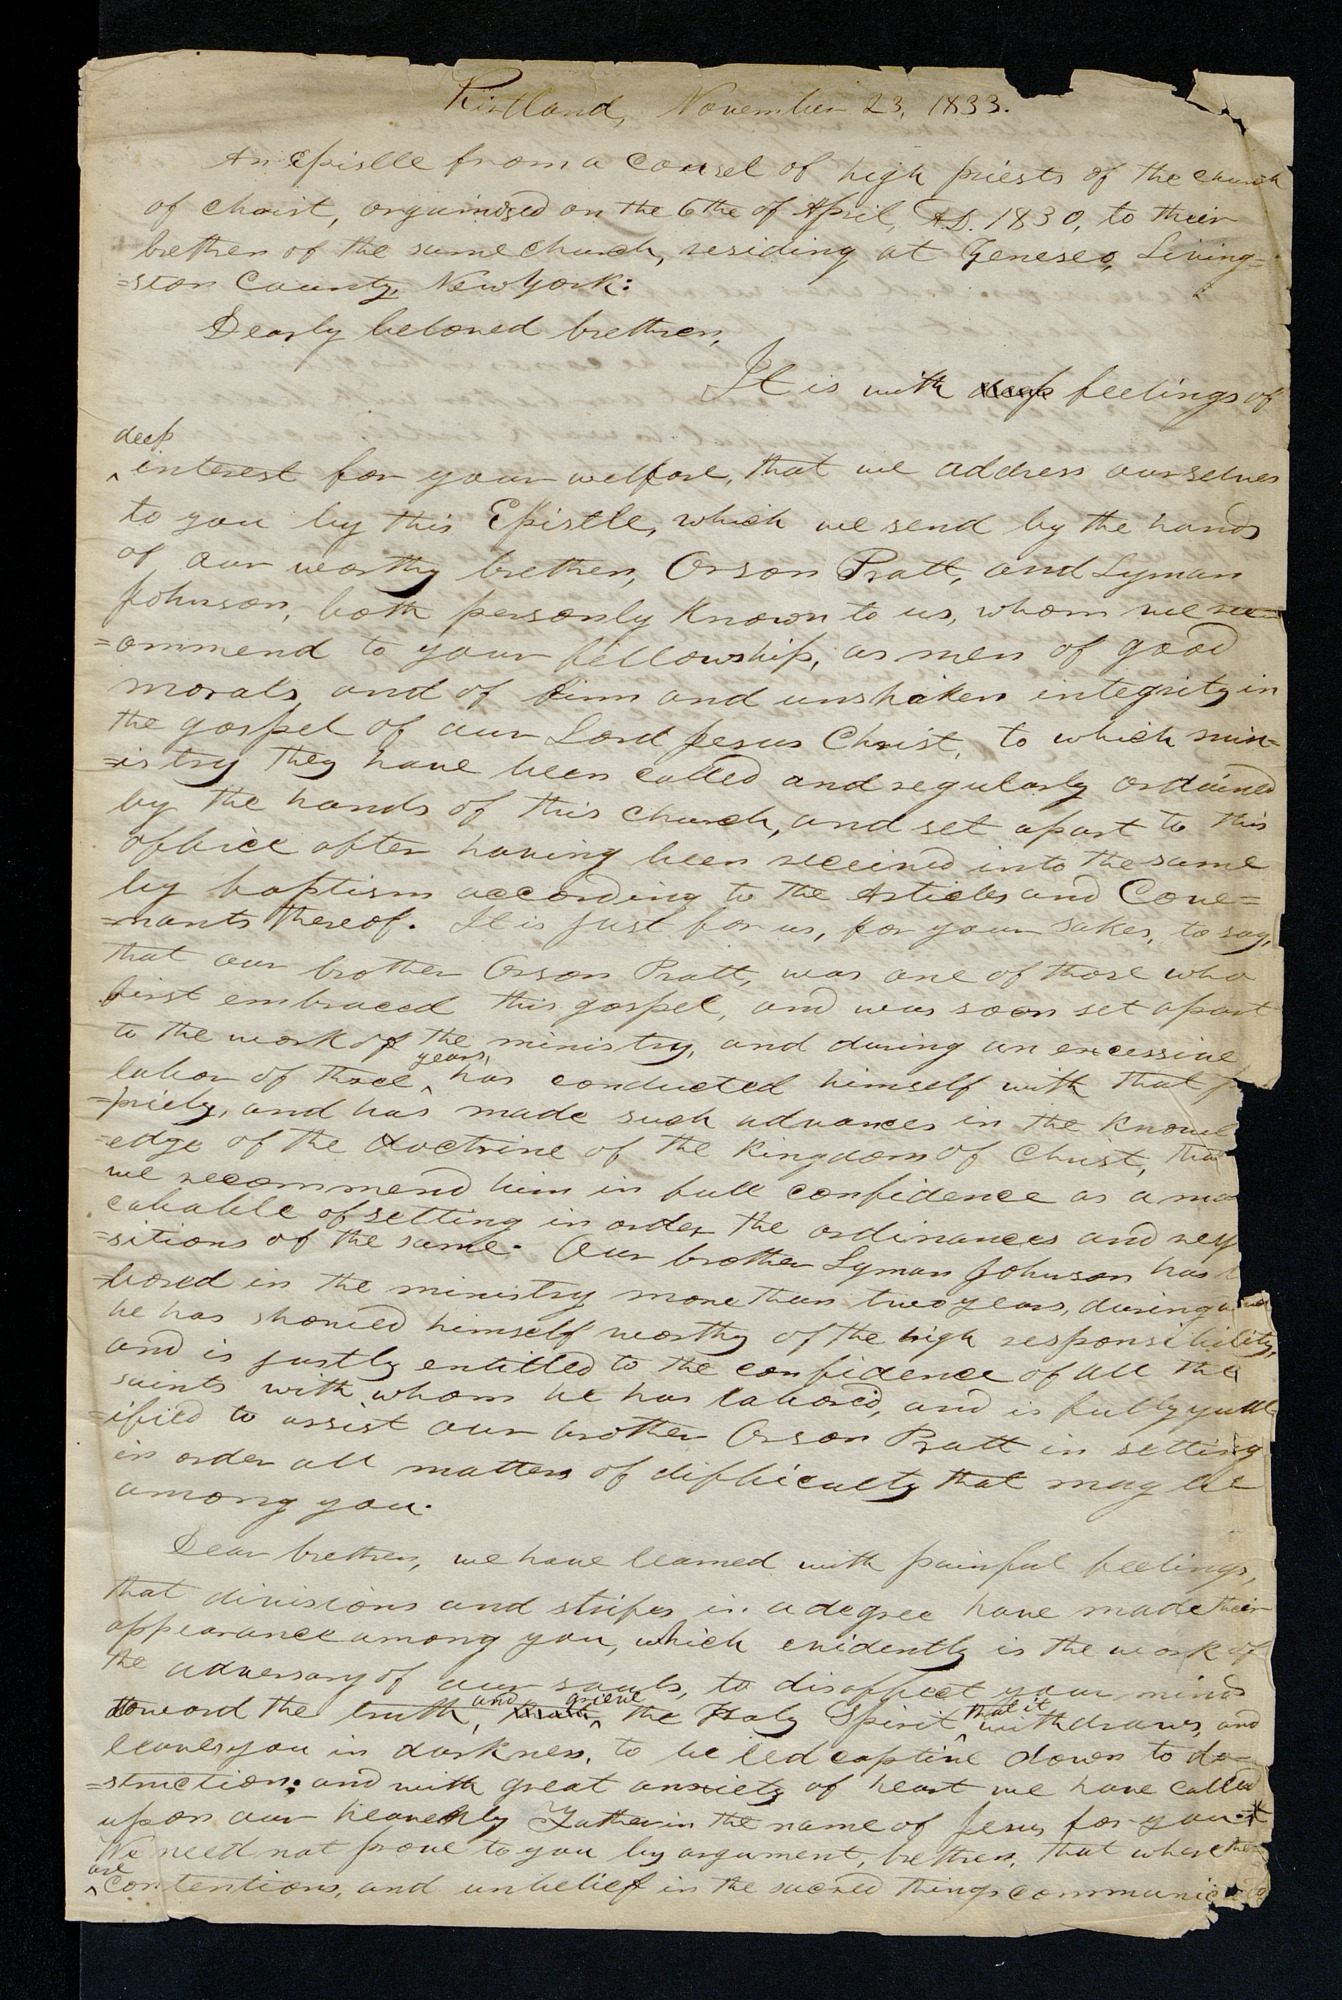 Kirtland, November 23, 1833.
An Epistle from a Counsel of high priests of the church
of christ, orgainized on the 6th of April, A.D. 1830, to their
brethen of the same church, residing at Geneseo, Living=
=ston County, New York:
Dearly beloved brethren,
It is with deep feelings of
deep
^interest for your welfare, that we address ourselves
to you by this Epistle, which we send by the hands
of our worthy brethen, Orson Pratt, and Lyman
Johnson, both personly known to us, whom we rec
=ommend to your fellowship, as men of good
morals and of firm and unshaken integrity in
the gospel of our Lord Jesus Christ, to which min=
=istry they have been called and regularly ordained
by the hands of this church, and set apart to this
office after having been received into the same
by baptism according to the Articles and Cove=
=nants thereof. It is just for us, for your sakes, to say,
that our brother Orson Pratt, was one of those who
first embraced this gospel, and was soon set apart
to the work of the ministry, and during an excessive
years,
labor of three ^ has conducted himself with that p
=piety, and has made such advances in the knowl
=edge of the doctrine of the kingdom of Christ, tha
we recommend him in full confidence as a ma
capable of setting in order the ordinances and req
=sitions of the same. Our brother Lyman Johnson has l
=bored in the ministry more than two years, during
he has showed himself worthy of the high responsibility,
and is justly entitled to the confidence of all the
saints with whom he has labored, and is fully qual
=ified to assist our brother Orson Pratt in setting
in order all matters of difficulty that may be
among you.
Dear brethen, we have learned with painful feelings,
that divisions and strifes in a degree have made their
appearance among you, which evidently is the work of
the adversary of our souls, to disaffect your minds
and grieve that it
toward the truth, ^ the Holy Spirit ^ withdraws, and
leaves you in darkness, to be led captive down to de=
=struction: and with great anxiety of heart we have called
upon our heavenly Father in the name of Jesus for you.
We need not prove to you by argument, brethen, that where there
are
^contentions, and unbelief in the sacred things communicated